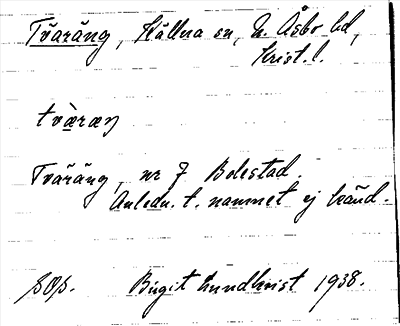 Tväräng, Källna sn, N. Åsbo hd,
Krist. l.
tvæ̀ræŋ
Tväräng, nr 7 Bolestad.
Anledn. t. namnet ej känd.
Birgit Lundkvist 1938.